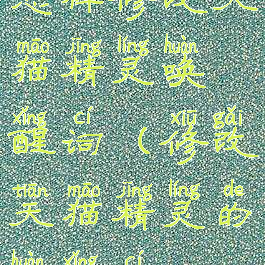 修改天
māo jīng líng huàn
猫精灵唤
xǐng cí xiū gǎi
醒词(修改
tiān māo jīng líng de
天猫精灵的
huàn xǐng cí